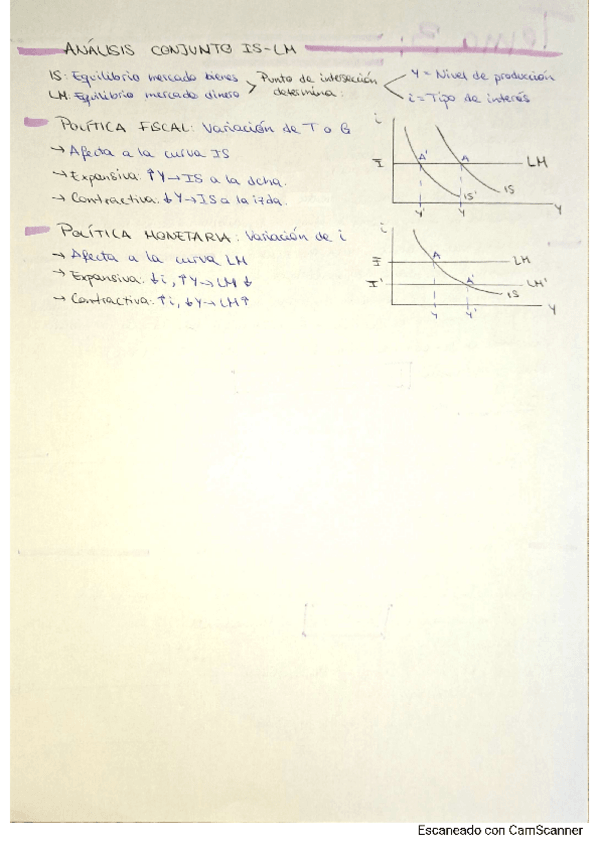 ANÁLISIS CONJUNTO IS-LM
IS: Equilibrio mercado bienes
LM: Equilibrio mercado dinero
Punto de intersección
determina:
Y = Nivel de producción
i = Tipo de interés
POLÍTICA FISCAL: Variación de T o G
→ Afecta a la curva IS
→ Expansiva: ↑Y → IS a la dcha.
→ Contractiva: ↓Y → IS a la izda.
i
ī
A'
A
LM
IS'
IS
Y'
Y
Y
POLÍTICA MONETARIA: Variación de i
→ Afecta a la curva LM
→ Expansiva: ↓i, ↑Y → LM ↓
→ Contractiva: ↑i, ↓Y → LM ↑
i
ī
A
LM
ī'
A'
LM'
IS
Y
Y'
Y
Escaneado con CamScanner